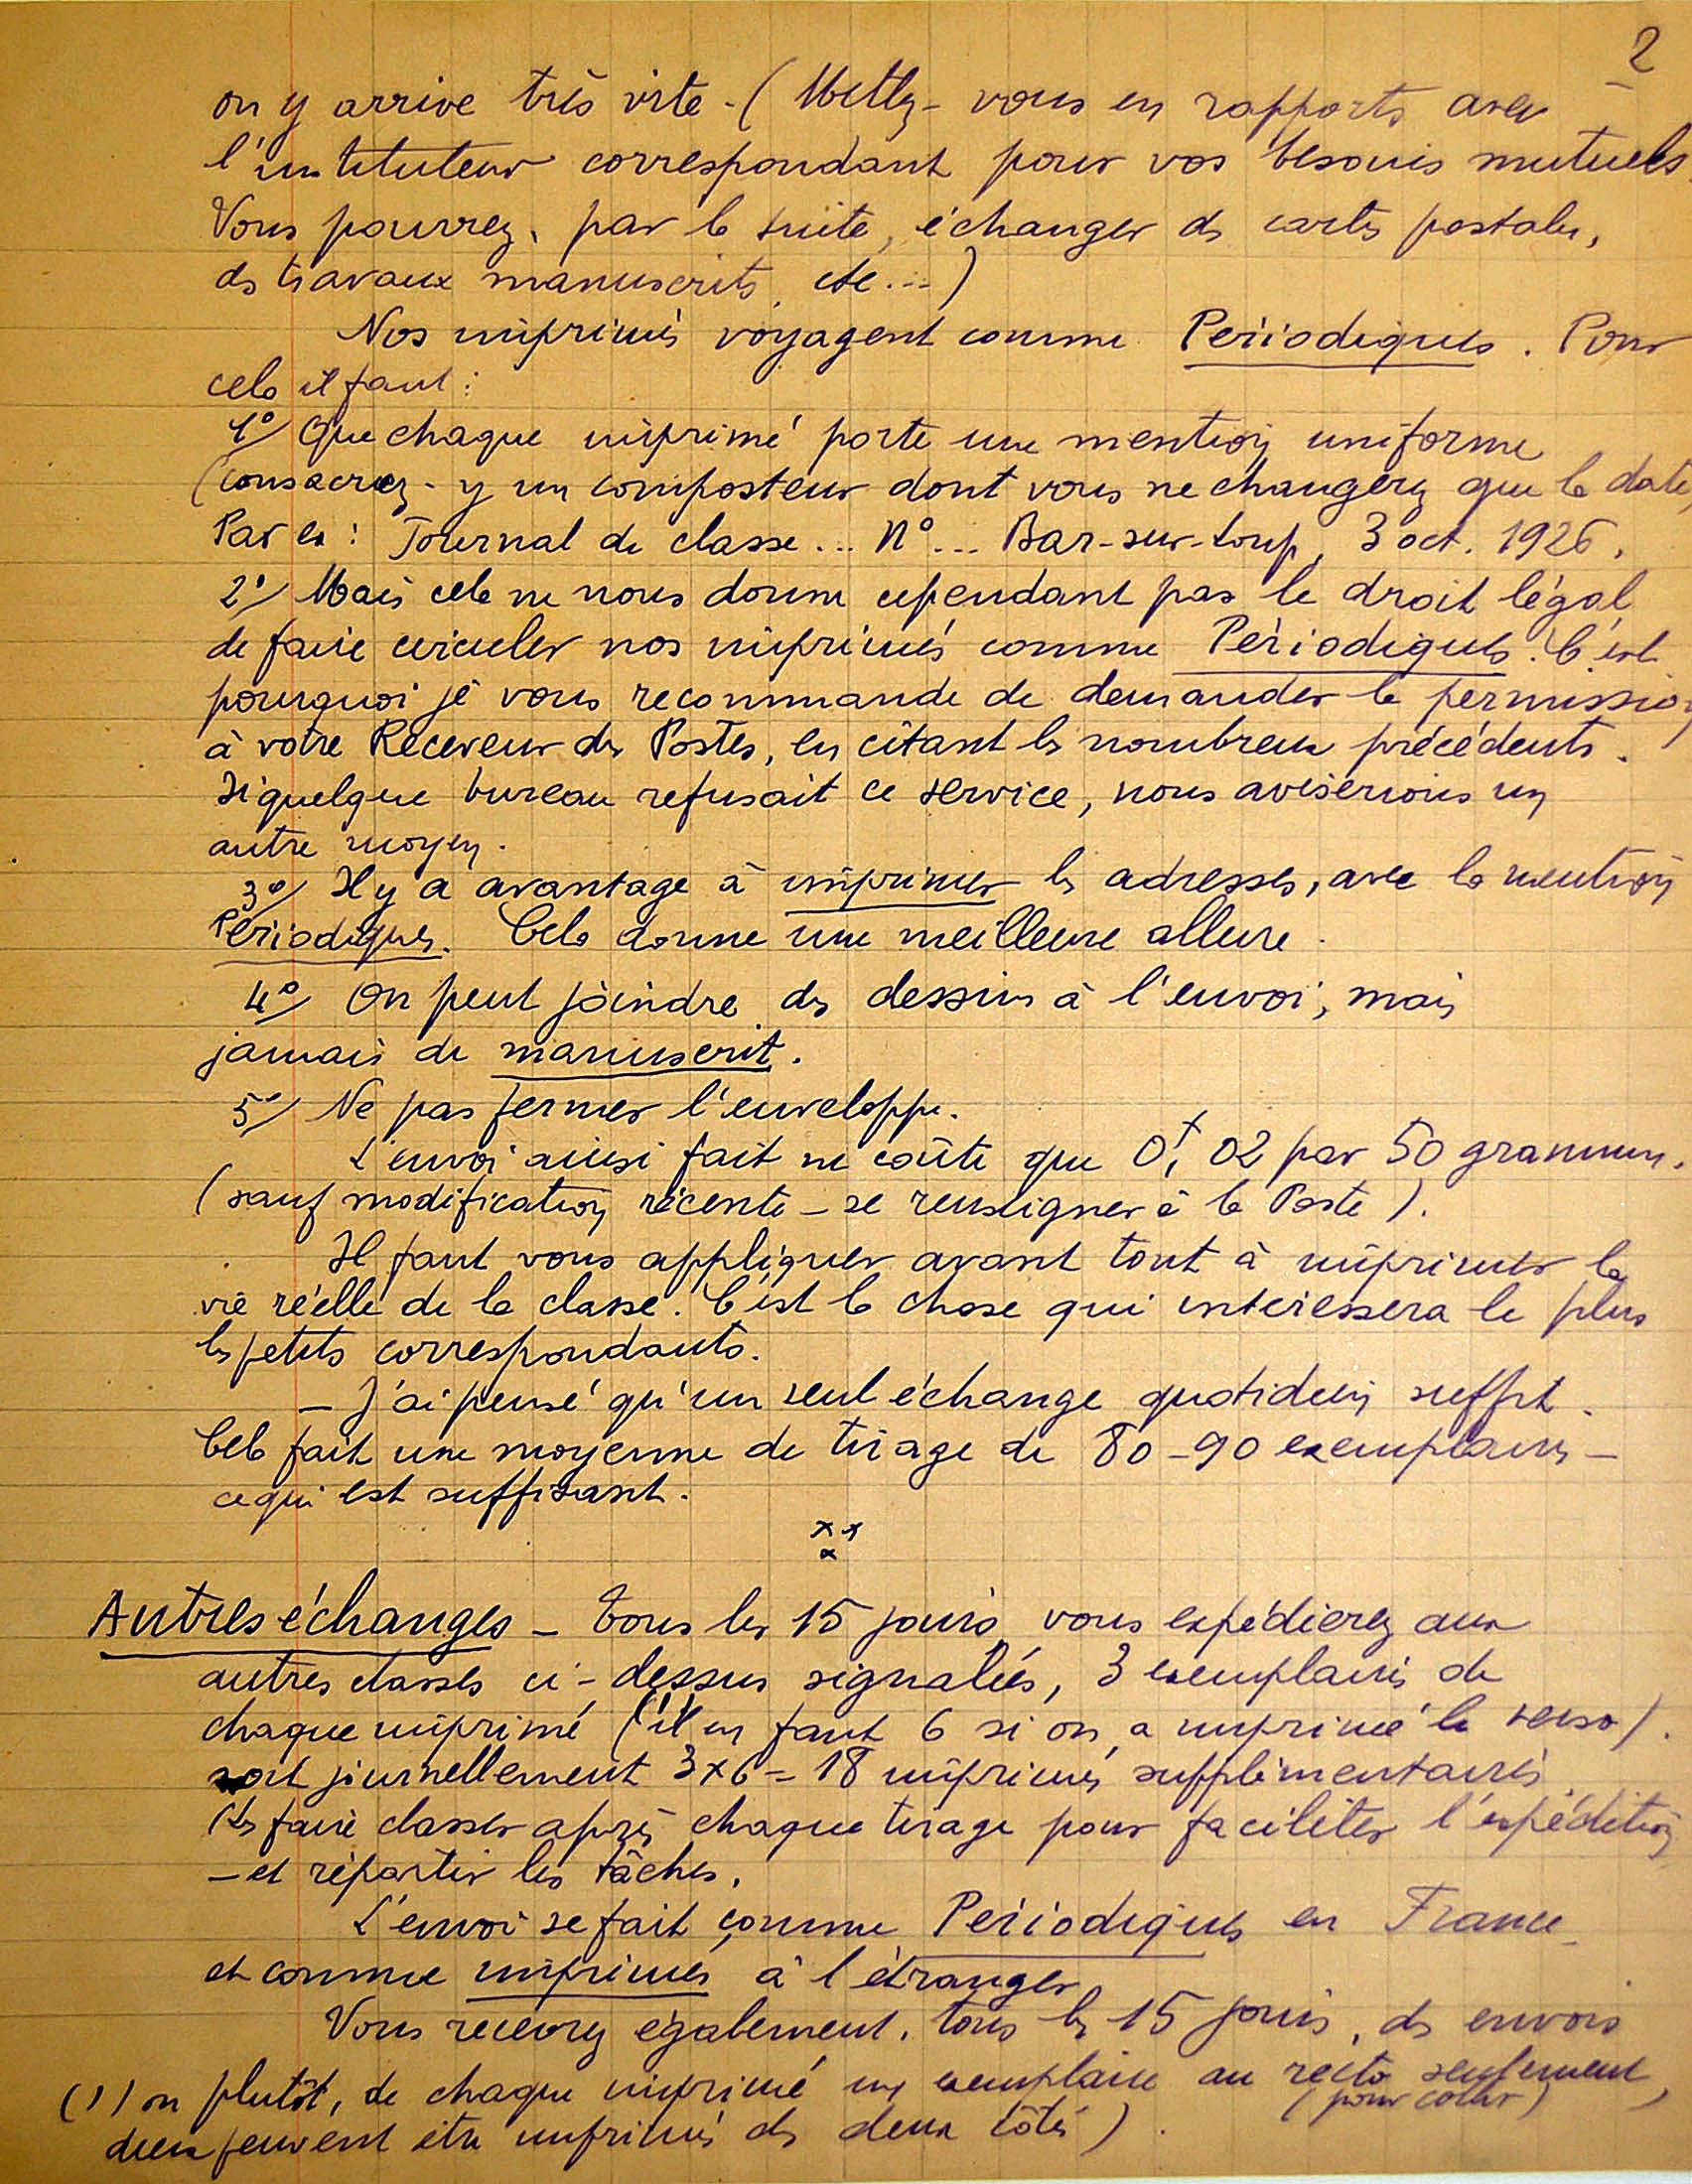 2
on y arrive très vite - (Mettez-vous en rapports avec
l'instituteur correspondant pour vos besoins mutuels.
Vous pourrez, par la suite, échanger des cartes postales,
des travaux manuscrits, etc...)
Nos imprimés voyagent comme Périodiques. Pour
cela il faut :
1°/ Que chaque imprimé porte une mention uniforme
(consacrez-y un composteur dont vous ne changerez que la date,
Par ex : Journal de classe... N°... Bar-sur-Loup, 3 oct. 1926.
2°/ Mais cela ne nous donne cependant pas le droit légal
de faire circuler nos imprimés comme Périodiques. C'est
pourquoi je vous recommande de demander la permission
à votre Receveur des Postes, en citant les nombreux précédents.
Si quelque bureau refusait ce service, nous aviserions un
autre moyen.
3°/ Il y a avantage à imprimer les adresses, avec la mention
Périodiques. Cela donne une meilleure allure.
4°/ On peut joindre des dessins à l'envoi, mais
jamais de manuscrit.
5°/ Ne pas fermer l'enveloppe.
L'envoi ainsi fait ne coûte que 0f,02 par 50 grammes.
(sauf modification récente - se renseigner à la Poste).
Il faut vous appliquer avant tout à imprimer la
vie réelle de la classe. C'est la chose qui intéressera le plus
les petits correspondants.
- J'ai pensé qu'un seul échange quotidien suffit.
Cela fait une moyenne de tirage de 80-90 exemplaires -
ce qui est suffisant.
x x
x
Autres échanges - Tous les 15 jours vous expédierez aux
autres classes ci-dessus signalées, 3 exemplaires de
chaque imprimé (1) (il en faut 6 si on a imprimé le verso).
soit journellement 3x6 = 18 imprimés supplémentaires
(les faire classer après chaque tirage pour faciliter l'expédition
- et répartir les tâches.
L'envoi se fait comme Périodiques en France
et comme imprimés à l'étranger
Vous recevrez également, tous les 15 jours, des envois
(1) ou plutôt, de chaque imprimé un exemplaire au recto seulement,
(pour coller)
deux peuvent être imprimés des deux côtés).